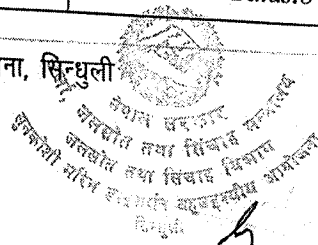 ना, सिन्धुली
नेपाल सरकार
जलस्रोत तथा सिंचाइ मन्त्रालय
जलस्रोत तथा सिंचाइ विभाग
सुनकोशी मरिन डाइभर्सन बहुउद्देश्यीय आयोजना
सिन्धुली